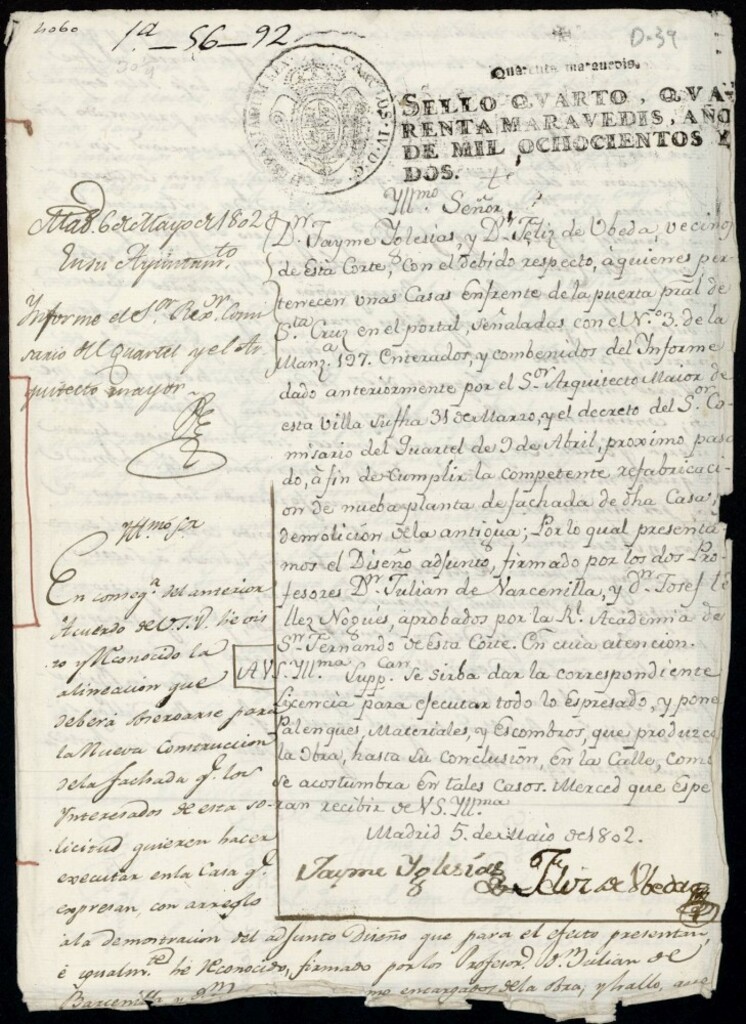 1.ª_56_92
D-39
Quarenta marauedis.
CAROLUS·IV·D·G·
SELLO QVARTO, QVA-
RENTA MARAVEDIS, AÑO
DE MIL OCHOCIENTOS Y
DOS.
Yll.mo Señor
D.n Jayme Yglesias, y D.n Feliz de Ubeda, vecinos
de Esta Corte, con el debido respecto, à quienes per-
tenecen unas Casas enfrente de la puerta pral de
S.ta Cruz en el portal, señaladas con el N.º 3. de la
Manz.ª 197. Enterados, y combenidos del Informe
dado anteriormente por el S.or Arquitecto Maior de
esta Villa su fha 31 de Marzo, y el decreto del S.or Co-
misario del Quartel de 9 de Abril, proximo pasa-
do, à fin de cumplir la competente refabricaci-
on de nueba planta de fachada de dha Casa,
demolicion de la antigua; Por lo qual presenta-
mos el Diseño adjunto, firmado por los dos Pro-
fesores D.n Julian de Varcenilla, y D.n Josef Te-
llez Nogués, aprobados por la R.l Academia de
S.n Fernando de Esta Corte. En cuia atencion.
A V.S. Yll.ma Supp.can Se sirba dar la correspondiente
Licencia para ejecutar todo lo Espresado, y pone
Palenques, Materiales, y Escombros, que produzca
la Obra, hasta su conclusión, en la Calle, como
se acostumbra en tales casos. Merced que Espe-
ran recibir de V.S. Yll.ma
Madrid 5. de Maio de 1802.
Jayme Yglesias Feliz de Ubeda
Mad.d 6 de Mayo de 1802
En su Ayuntam.to
Informe el S.or Rex.or Comi-
sario del Quartel y el Ar-
quitecto mayor
Yll.mo S.r
En conseq.ª del anterior
Acuerdo de V.S.Y. he vis-
to y Reconocido la
alineacion que
deberá observarse para
la Nueva Construccion
de la fachada q.e los
Ynteresados de esta so-
licitud quieren hacer
executar en la Casa q.e
expresan, con arreglo
a la demostracion del adjunto Diseño que para el efecto presentan,
è igualm.te he Reconocido, firmado por los Profesor.s D.n Julian de
Barcenilla y D.n
mo encargados de la obra; y hallo, que